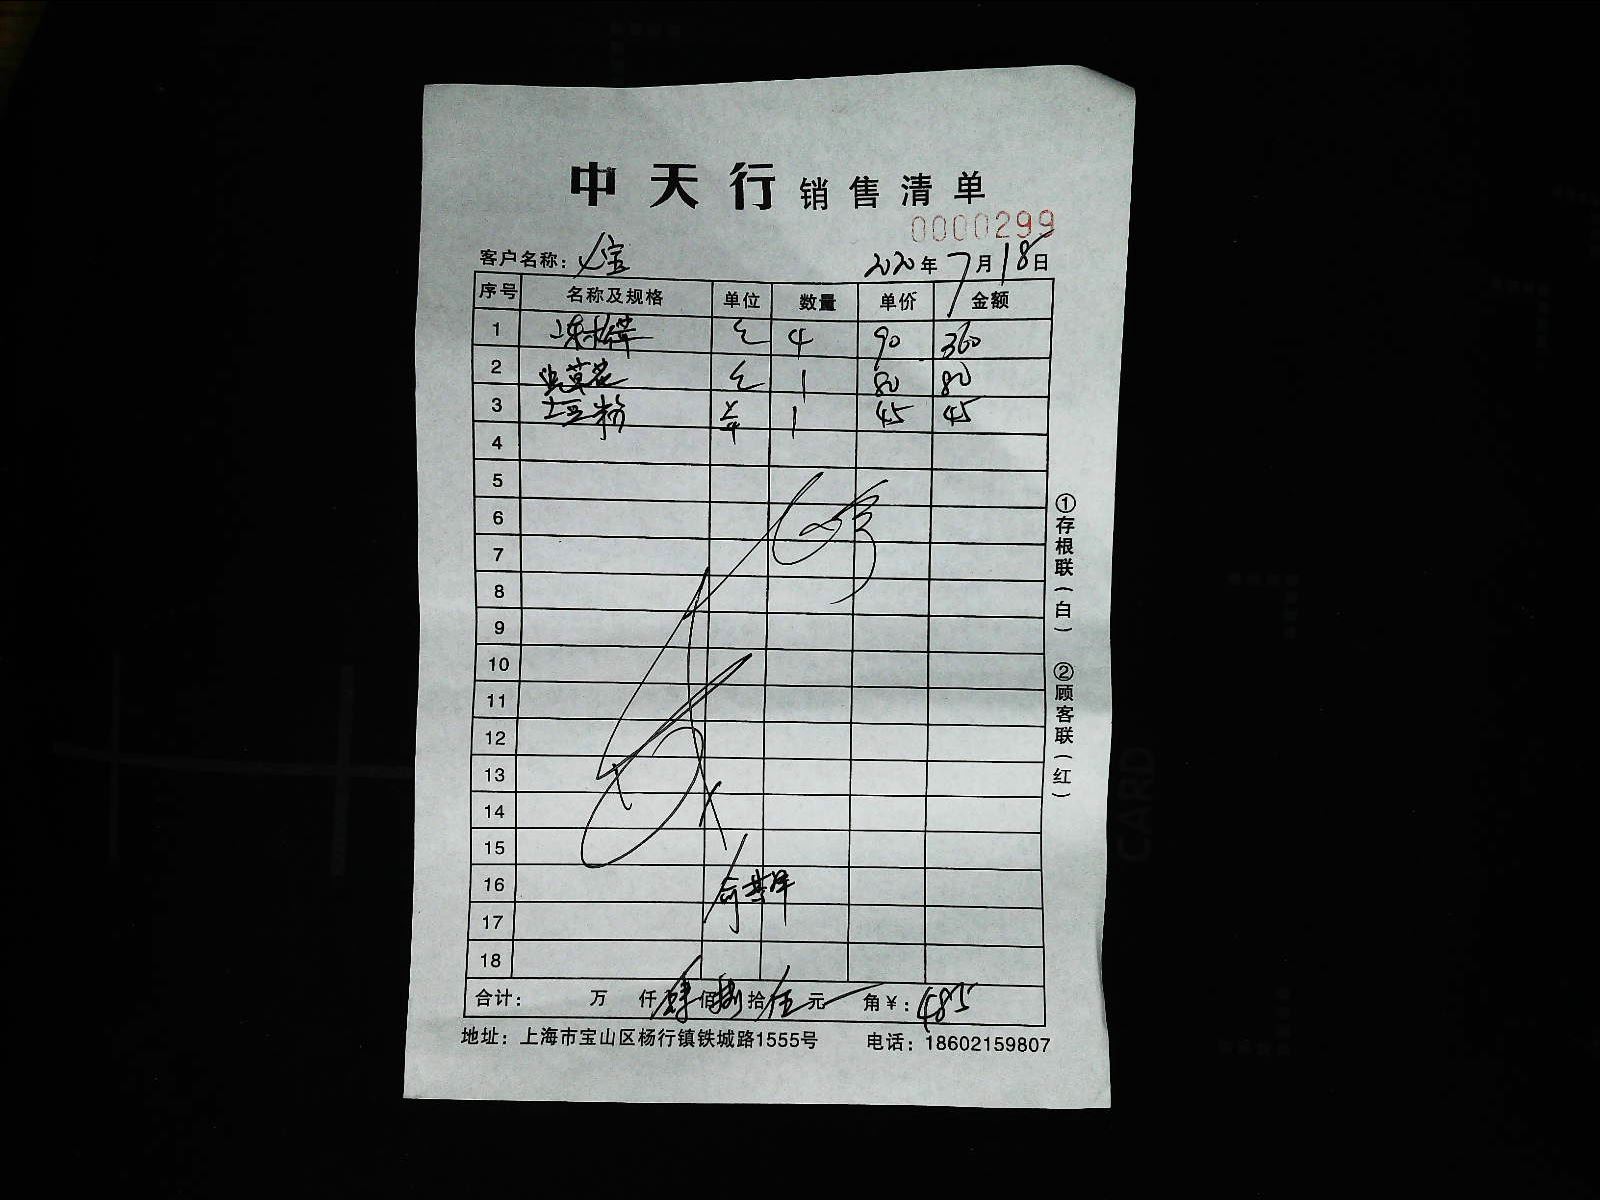 中天行销售清单
0000299
客户名称：
2020年7月18日
序号 名称及规格 单位 数量 单价 金额
1 4 90 360
2 虫草花 1 80 80
3 土豆粉 1 45 45
4
5
6
7
8
9
10
11
12
13
14
15
16
17
18
合计： 万 仟 肆佰捌拾伍元 角¥：485
地址：上海市宝山区杨行镇铁城路1555号 电话：18602159807
①存根联（白） ②顾客联（红）
CARD